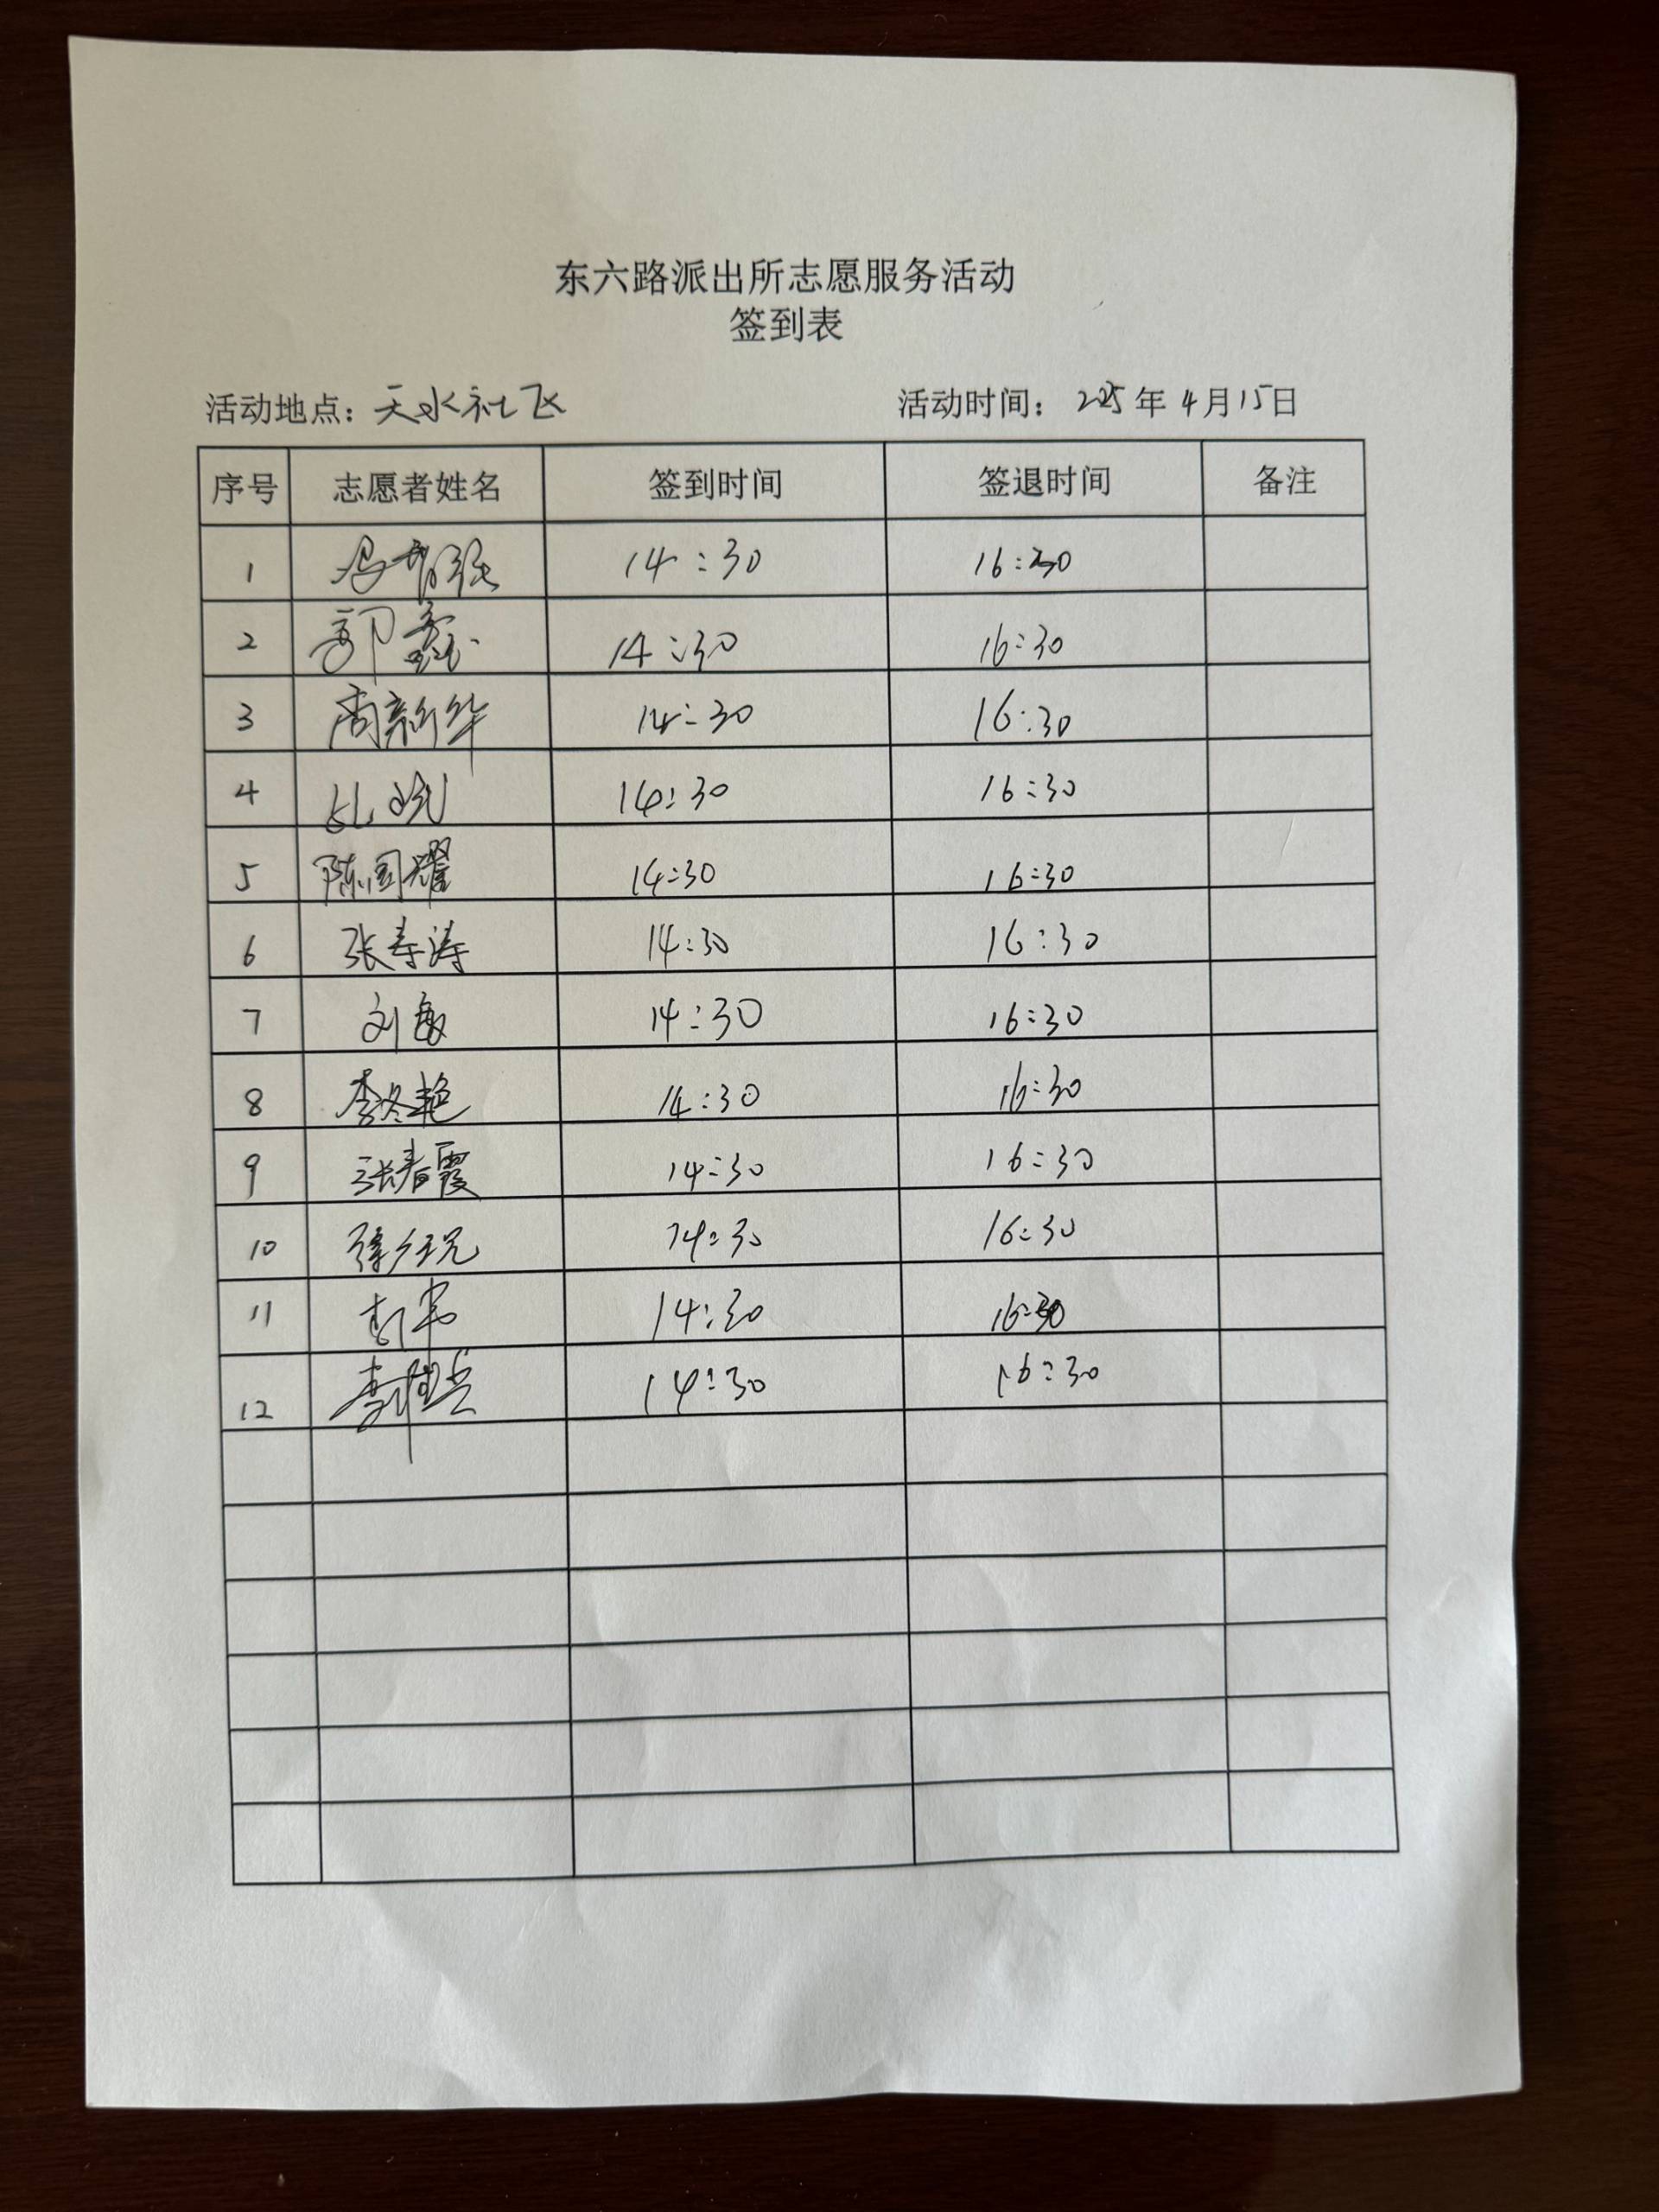 东六路派出所志愿服务活动
签到表
活动地点：天水社区 活动时间：2025年4月15日
序号 志愿者姓名 签到时间 签退时间 备注
1 14:30 16:30
2 郭鑫 14:30 16:30
3 周新华 14:30 16:30
4 14:30 16:30
5 陈国耀 14:30 16:30
6 张寿涛 14:30 16:30
7 刘敏 14:30 16:30
8 李冬艳 14:30 16:30
9 张春霞 14:30 16:30
10 14:30 16:30
11 14:30 16:30
12 14:30 16:30